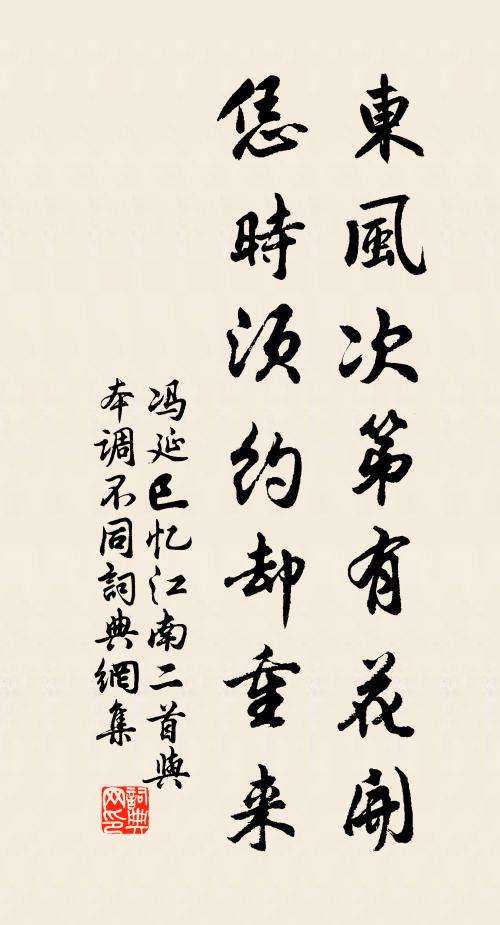 東風次第有花開
恁時須約却重来
冯延巳忆江南二首與
本調不同詞典網集
詞典
网印